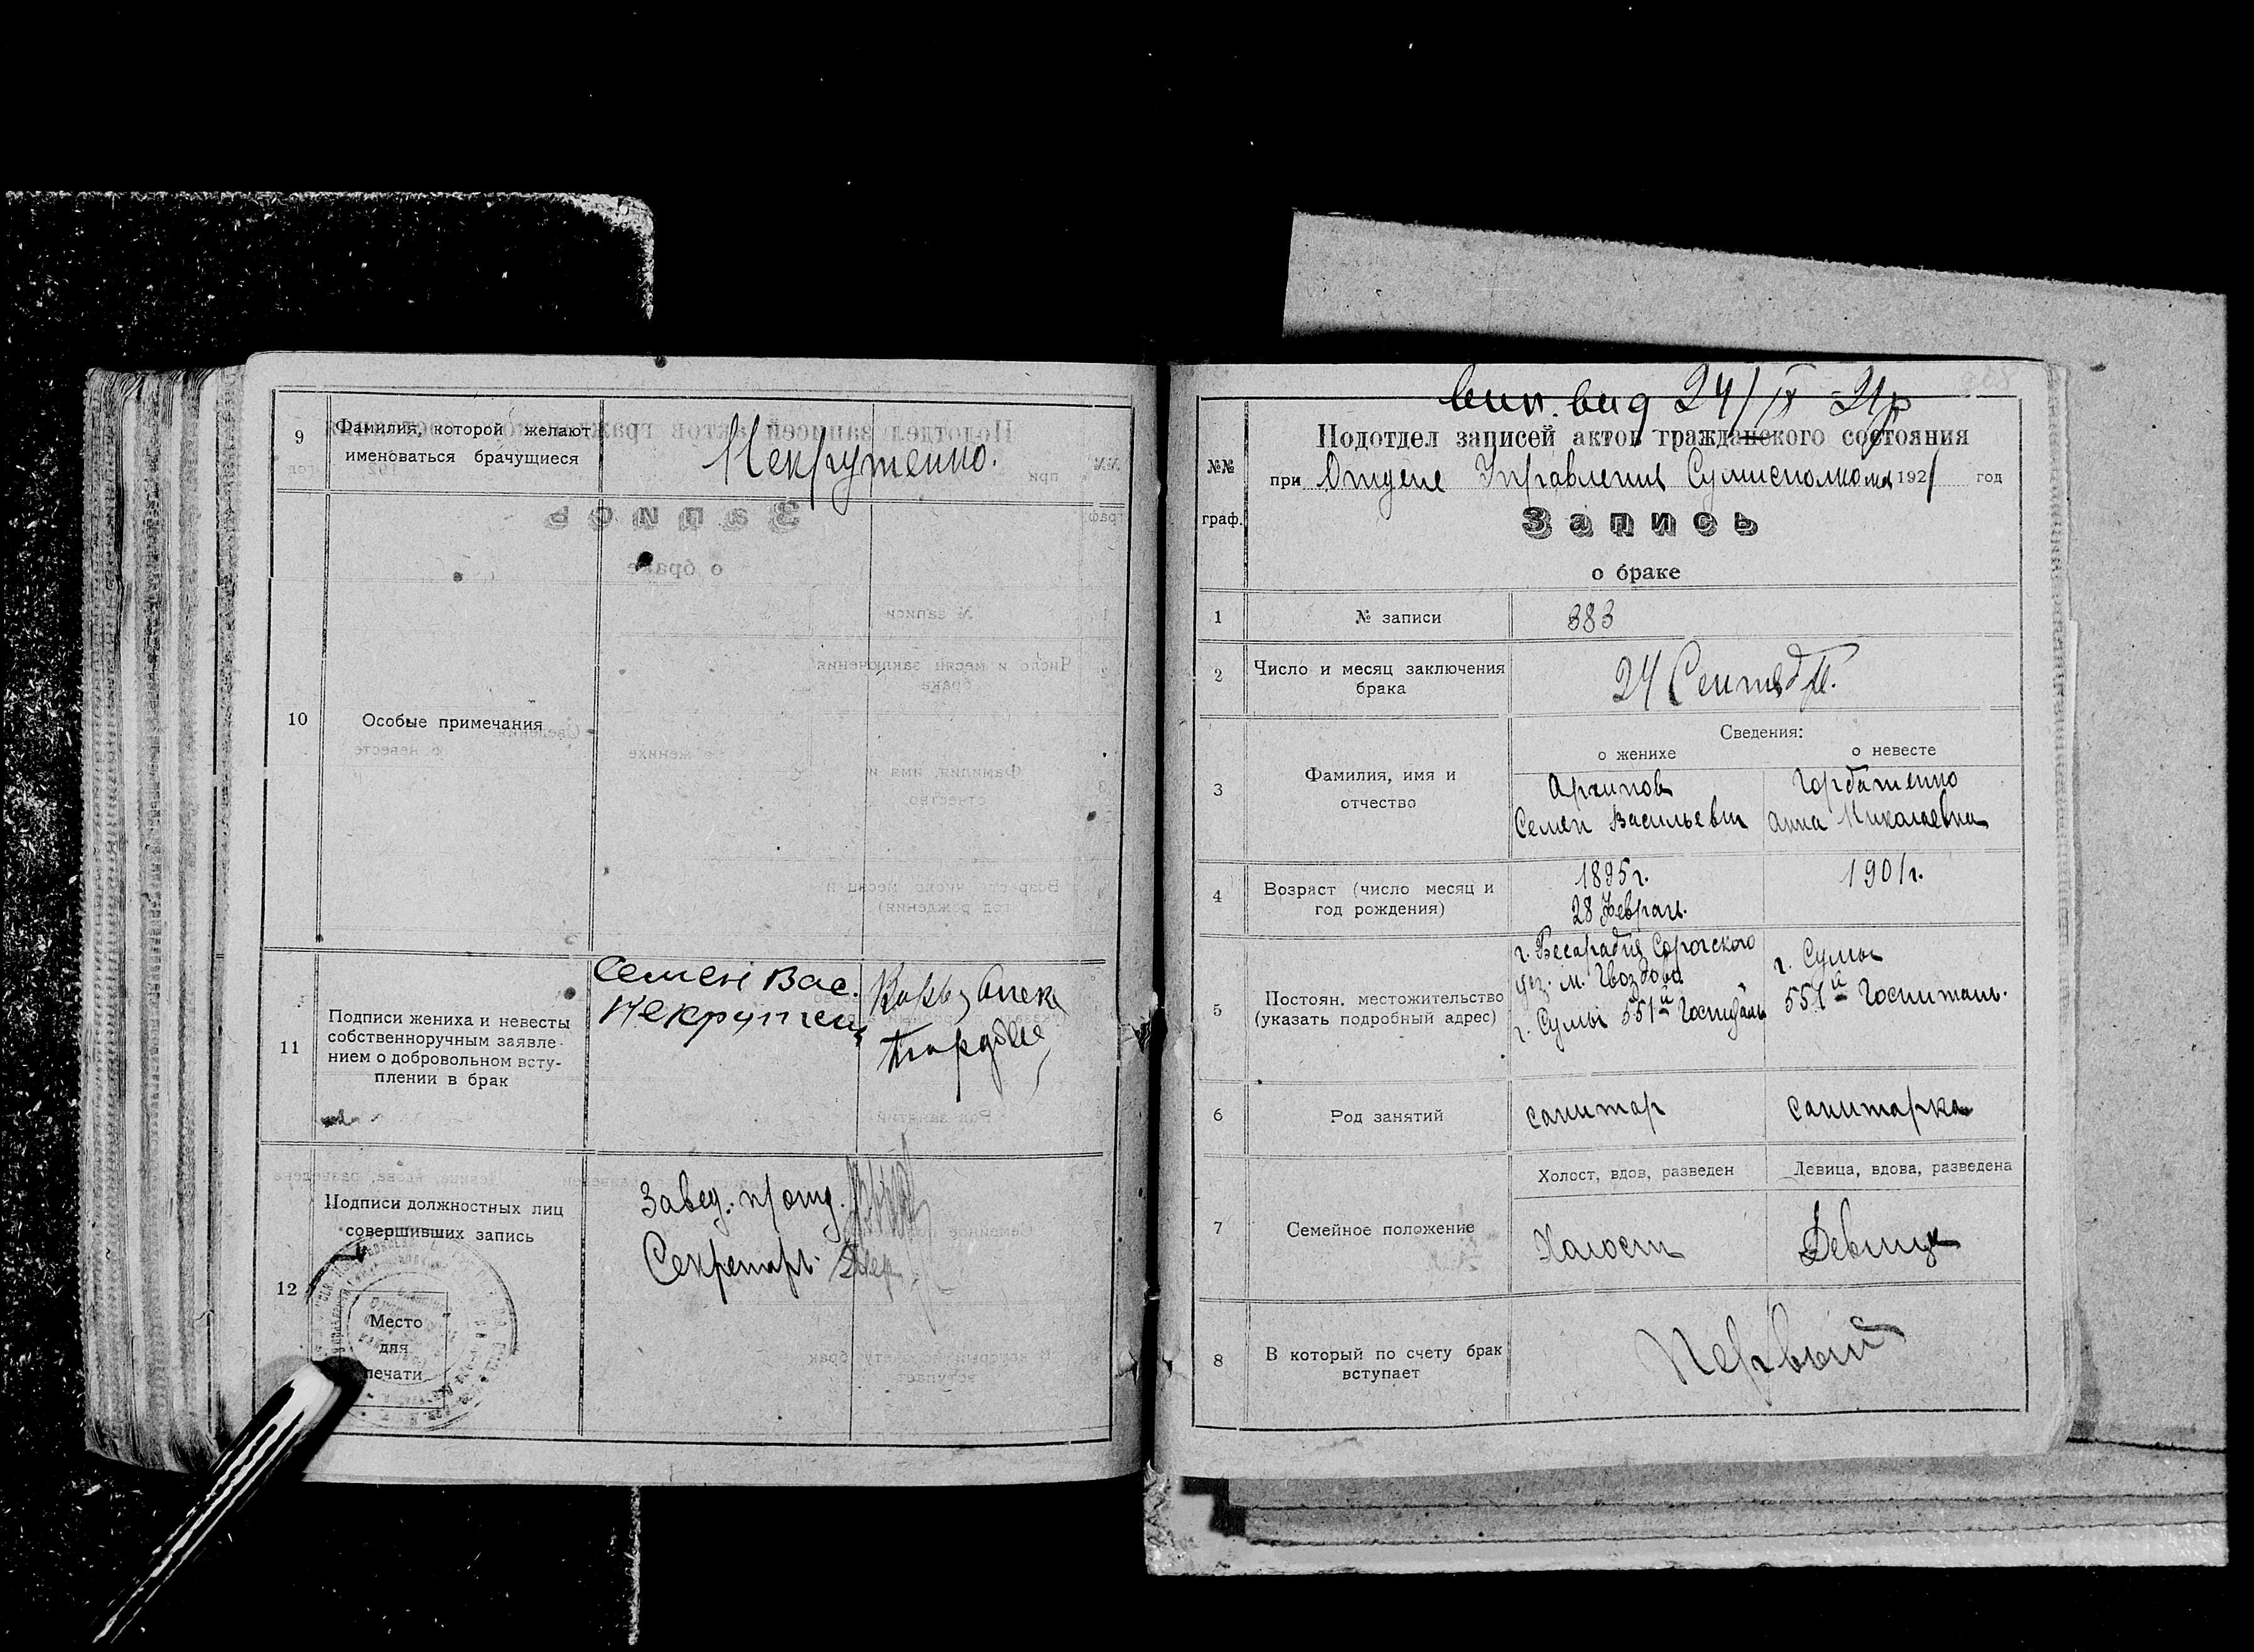 9
Фамилия, которой желают
именоваться брачущиеся
Некрутенко.
10
Особые примечания
11
Подписи жениха и невесты
собственноручным заявле-
нием о добровольном всту-
плении в брак
Семен Вас.
12
Подписи должностных лиц
совершивших запись
Завед. п/отд.
Секретарь
Место
для
печати
вид 24/IX 21г
Подотдел записей актов гражданского состояния
при Отделе Управления Сумисполкома 1921 год
№№
граф.
Запись
о браке
1
№ записи
383
2
Число и месяц заключения
брака
24 Сентяб.
Сведения:
о женихе
о невесте
3
Фамилия, имя и
отчество
Архипов
Семен Васильевич
Горбатенко
Анна Николаевна
4
Возраст (число месяц и
год рождения)
1895 г.
28 Феврал.
1901 г.
5
Постоян. местожительство
(указать подробный адрес)
г. Бесарабия Сорокского
уез. м. Гвоздова
г. Сумы 551й Госпиталь
г. Сумы
551й Госпиталь.
6
Род занятий
санитар
санитарка
7
Семейное положение
Холост, вдов, разведен
Девица, вдова, разведена
Холост
Девица
8
В который по счету брак
вступает
Первый